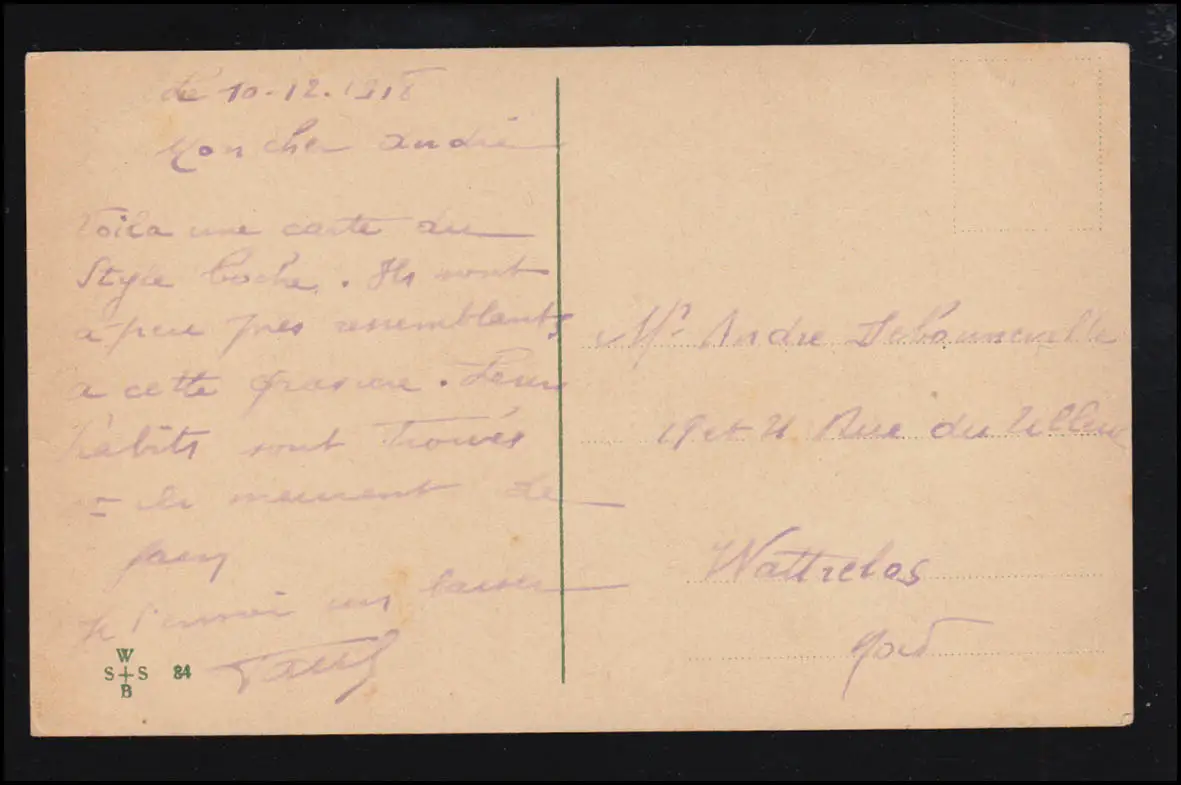 Le 10-12.1918
Mon cher André
Voila une carte du
Style boche. Ils sont
a peu près ressemblants
a cette gravure. Leurs
habits sont Troués
= ils meurent de
faim
Je t'envoi un baiser
Paul
W
S + S 84
B
Mr André Debonneville
19 et 21 Rue du
Wattrelos
Nord